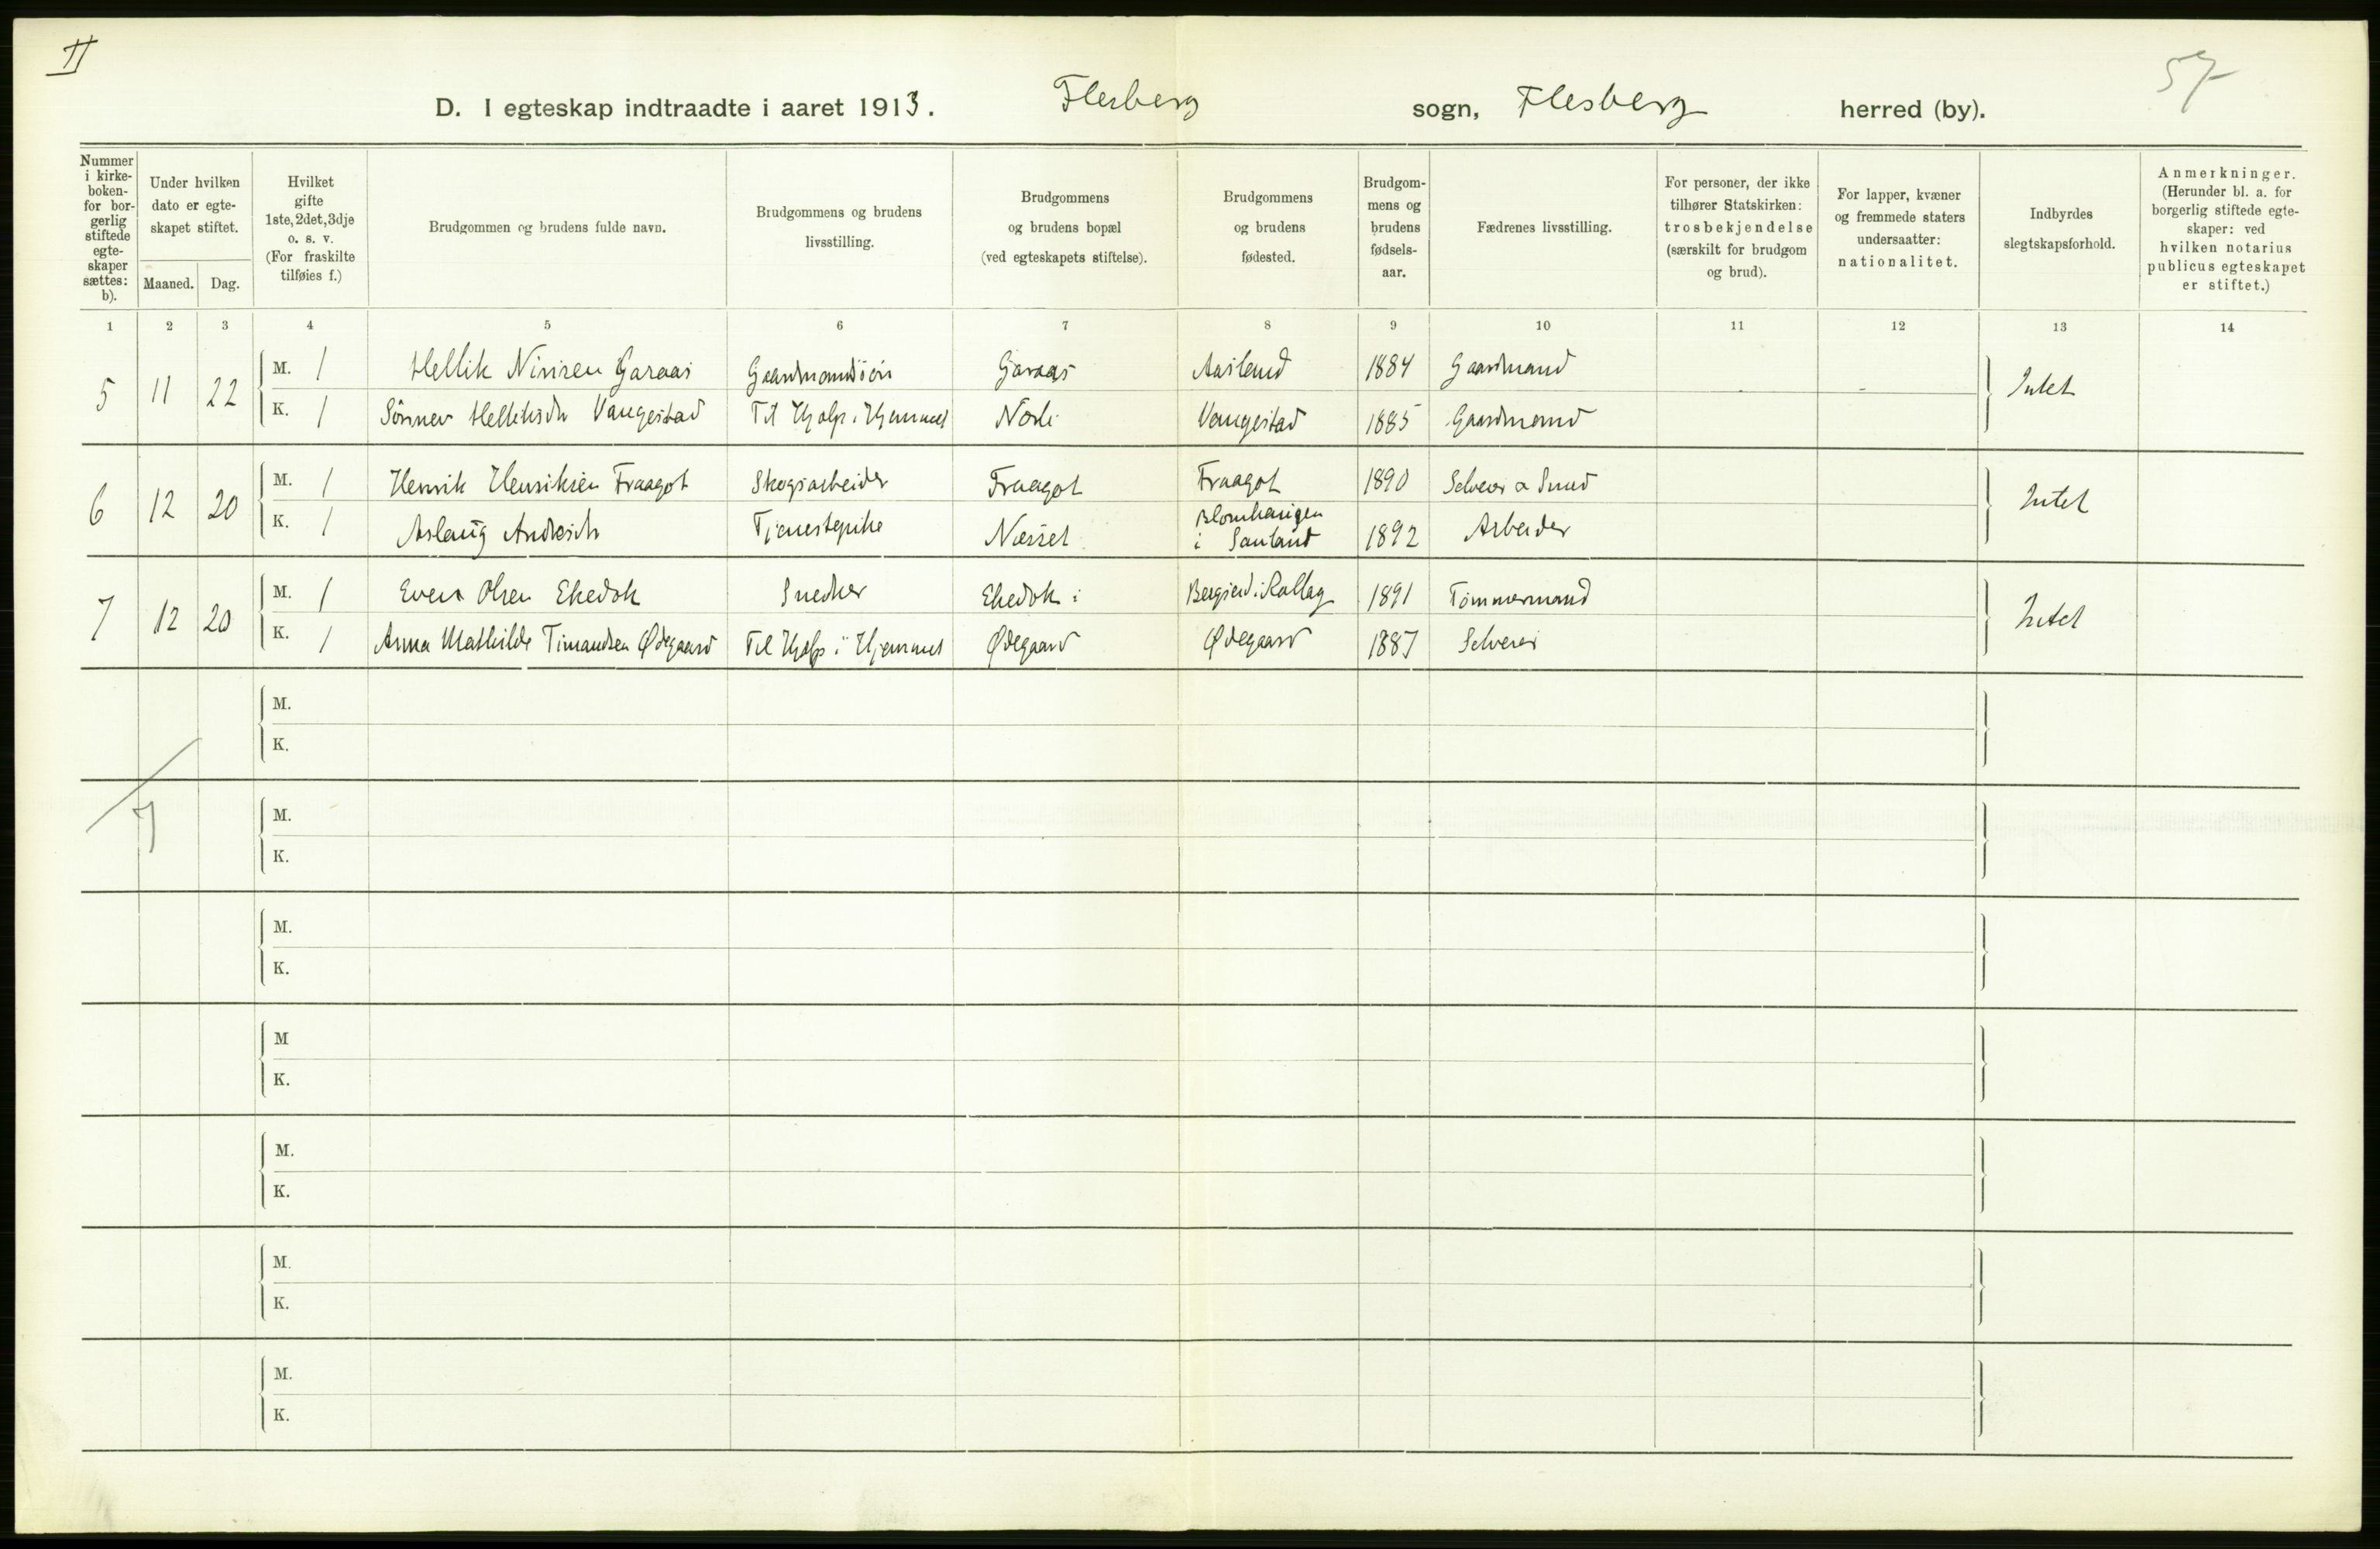 II
57
D. I egteskap indtraadte i aaret 1913. Flesberg sogn, Flesberg herred (by).
Nummer i kirke-boken- for bor-gerlig stiftede egte-skaper sættes: b).
Under hvilken dato er egte-skapet stiftet.
Maaned. Dag.
Hvilket gifte 1ste, 2det, 3dje o. s. v. (For fraskilte tilføies f.)
Brudgommen og brudens fulde navn.
Brudgommens og brudens livsstilling.
Brudgommens og brudens bopæl (ved egteskapets stiftelse).
Brudgommens og brudens fødested.
Brudgom-mens og brudens fødsels-aar.
Fædrenes livsstilling.
For personer, der ikke tilhører Statskirken: trosbekjendelse (særskilt for brudgom og brud).
For lapper, kvæner og fremmede staters undersaatter: nationalitet.
Indbyrdes slegtskapsforhold.
Anmerkninger. (Herunder bl. a. for borgerlig stiftede egte-skaper: ved hvilken notarius publicus egteskapet er stiftet.)
1 2 3 4 5 6 7 8 9 10 11 12 13 14
5 11 22 M. 1 Hellik Nirisen Garaas Gaardmandssön Garaas Aasland 1884 Gaardmand Intet
K. 1 Vangestad Til Hjælp i Hjemmet Vangestad 1885 Gaardmand
6 12 20 M. 1 Henrik Henriksen Fraagot Skogsarbeider Fraagot Fraagot 1890 Selveier & Smed Intet
K. 1 Aslaug Tjenestepike Næsset i Sauland 1892 Arbeider
7 12 20 M. 1 Even Olsen Ekedok Snedker Ekedok i Rollag 1891 Tömmermand Intet
K. 1 Anna Mathilde Timandsen Ødegaard Til Hjælp i Hjemmet Ødegaard Ødegaard 1887 Selveier
M.
K.
7
M.
K.
M.
K.
M
K.
M.
K.
M.
K.
M.
K.